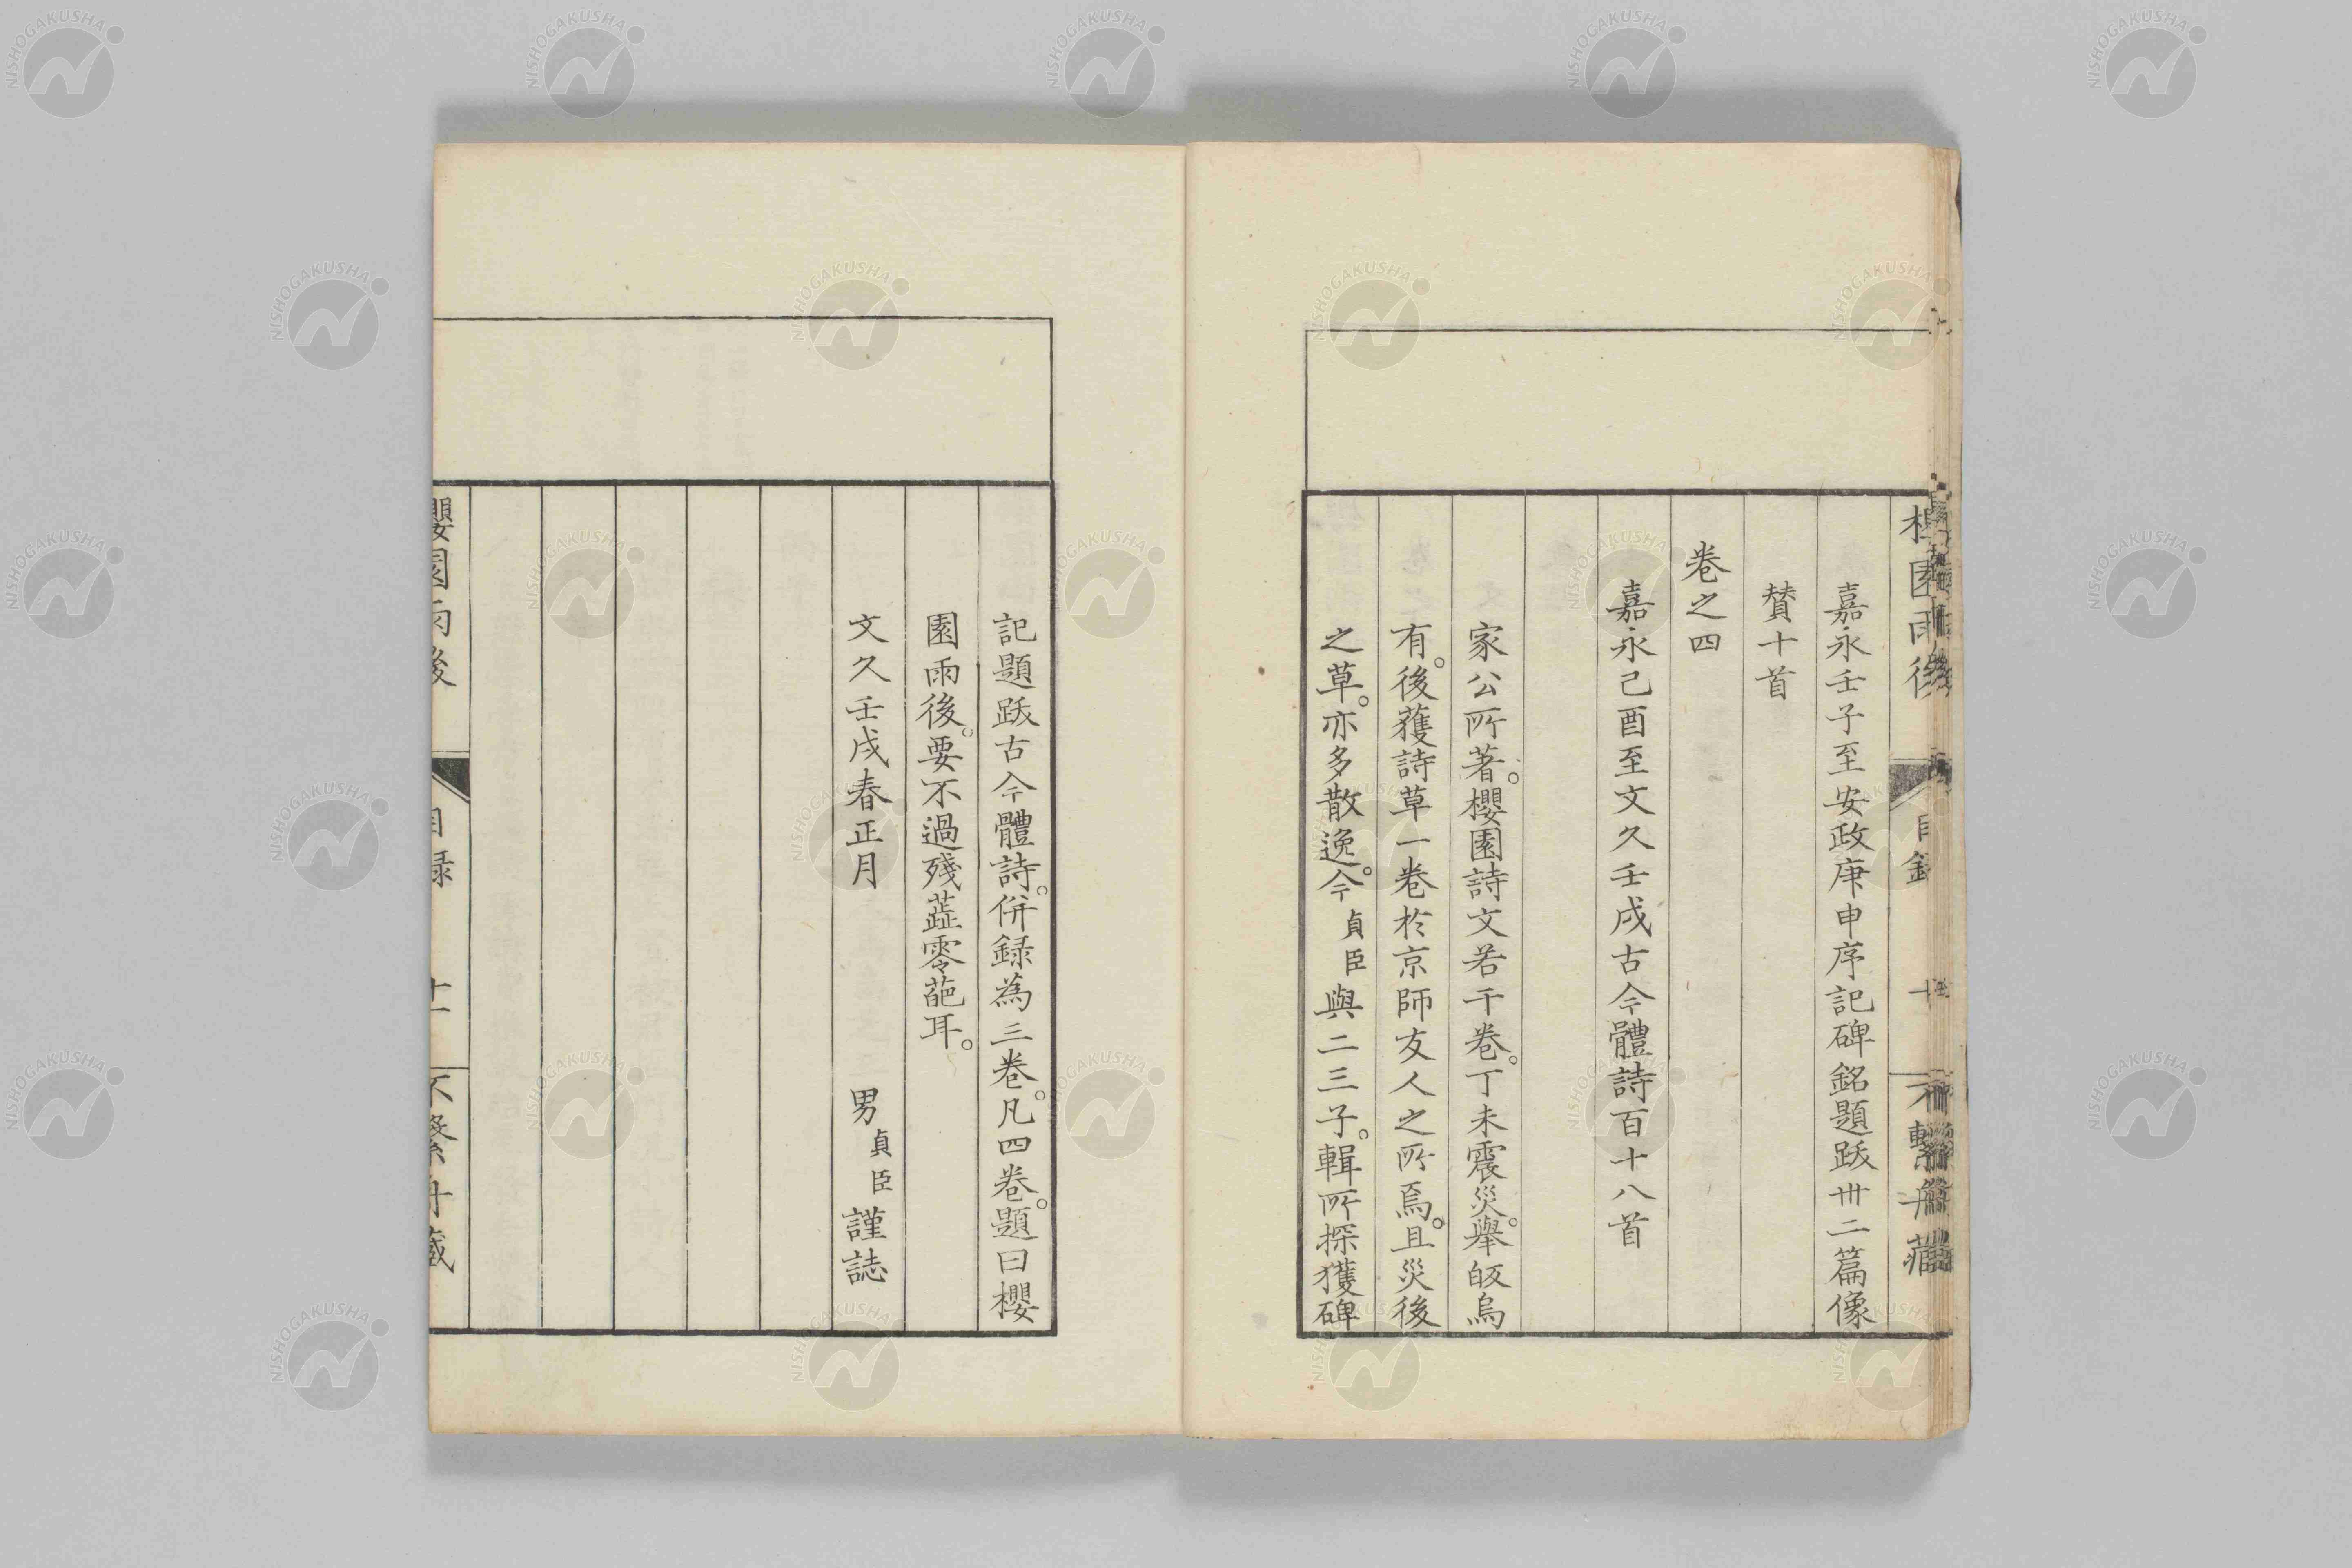 嘉永壬子至安政庚申序記碑銘題跋卅二篇像
賛十首
卷之四
嘉永己酉至文久壬戌古今體詩百十八首
家公所著。櫻園詩文若干卷。丁未震災。擧皈烏
有。後蒦詩草一卷於京師友人之所焉。且災後
之草。亦多散逸。今貞臣與二三子。輯所探獲碑
記題跋古今體詩。併録為三卷。凡四卷。題曰櫻
園雨後。要不過殘蕋零葩耳。
文久壬戌春正月 男貞臣謹誌
櫻園雨後 目録 十一 不繫舟藏
NISHOGAKUSHA